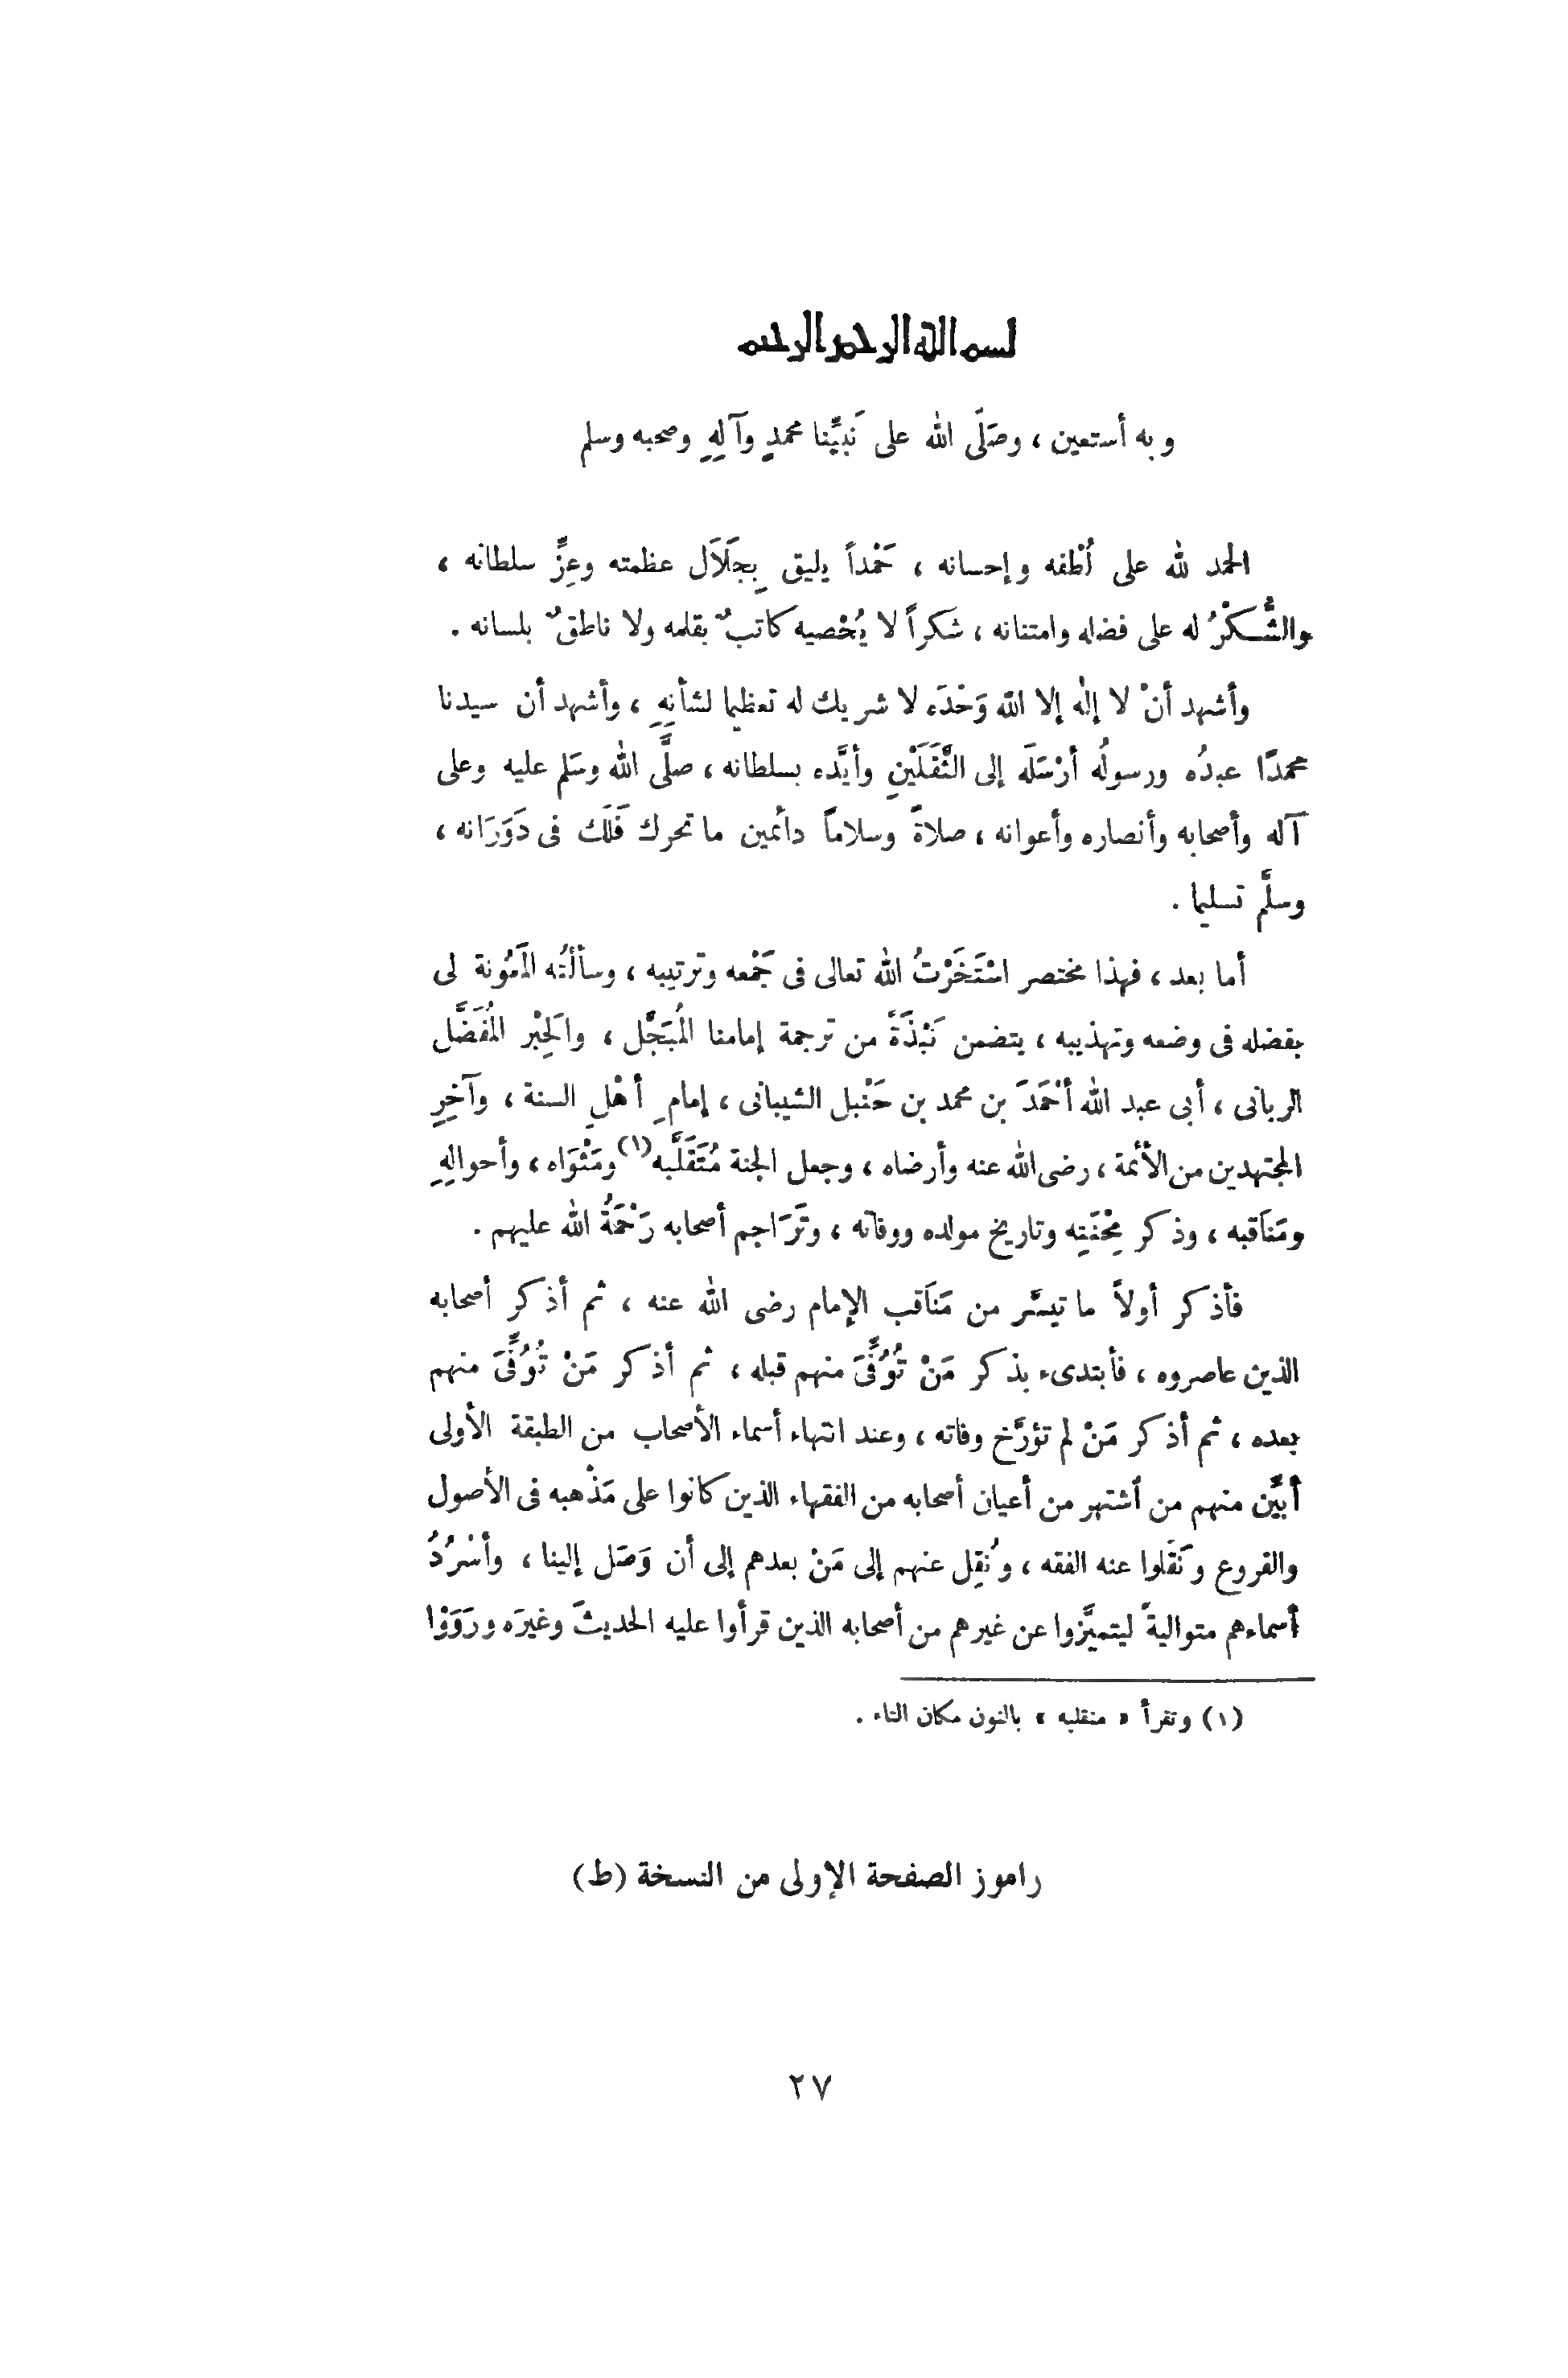 بسم الله الرحمن الرحيم
وبه أستعين ، وصَلَّى الله على نَبيِّنا محمدٍ وآلِهِ وصحبه وسلم
الحمد لله على لُطْفه وإحسانه ، حَمْداً يليق بِجَلَالِ عظمته وعِزِّ سلطانه ،
والشُّكْرُ له على فضله وامتنانه ، شكراً لا يُحْصيه كاتبٌ بقلمه ولا ناطقٌ بلسانه .
وأشهد أنْ لا إلٰه إلا الله وَحْدَه لا شريك له تعظيما لشأنِهِ ، وأشهد أن سيدنا
محمدًا عبدُه ورسولُه أرْسَلَه إلى الثَّقَلَيْنِ وأيَّده بسلطانه ، صلَّى الله وسَلم عليه وعلى
آله وأصحابه وأنصاره وأعوانه ، صلاةً وسلاماً دائمين ما تحرك فَلَك فى دَوَرَانه ،
وسلَّم تسليما .
أما بعد ، فهذا مختصر اسْتَخَرْتُ الله تعالى فى جَمْعه وترتيبه ، وسألتُه المَعُونة لى
بفضله فى وضعه وتهذيبه ، يتضمن نَبْذَةً من ترجمة إمامنا المُبَجَّل ، والحِبْر المُفَضَّل
الربانى ، أبى عبد الله أحْمَدَ بن محمد بن حَنْبل الشيبانى ، إمامِ أهْلِ السنة ، وآخِرِ
المجتهدين من الأئمة ، رضى الله عنه وأرضاه ، وجعل الجنة مُتَقَلَّبه (١) ومَثْوَاه ، وأحوالِهِ
ومَناَقبه ، وذكر مِحْنَتِه وتاريخ مولده ووفاته ، وتَرَاجم أصحابه رَحْمَةُ الله عليهم .
فأذكر أولاً ما تيسَّر من مَناَقب الإمام رضى الله عنه ، ثم أذكر أصحابه
الذين عاصروه ، فأبتدىء بذكر مَنْ تُوُفِّىَ منهم قبله ، ثم أذكر مَنْ تُوُفِّىَ منهم
بعده ، ثم أذكر مَنْ لم تؤرَّخ وفاته ، وعند انتهاء أسماء الأصحاب من الطبقة الأولى
أبيِّن منهم من أشتهر من أعيان أصحابه من الفقهاء الذين كانوا على مَذْهبه فى الأصول
والفروع ونَقَلوا عنه الفقه ، ونُقِل عنهم إلى مَنْ بعدهم إلى أن وَصَل إلينا ، وأسْرُدُ
أسماءهم متواليةً ليتميَّزوا عن غيرهم من أصحابه الذين قرأوا عليه الحديثَ وغيرَه ورَوَوْا
(١) وتقرأ « منقلبه » بالنون مكان التاء .
راموز الصفحة الإولى من النسخة (ط)
٢٧